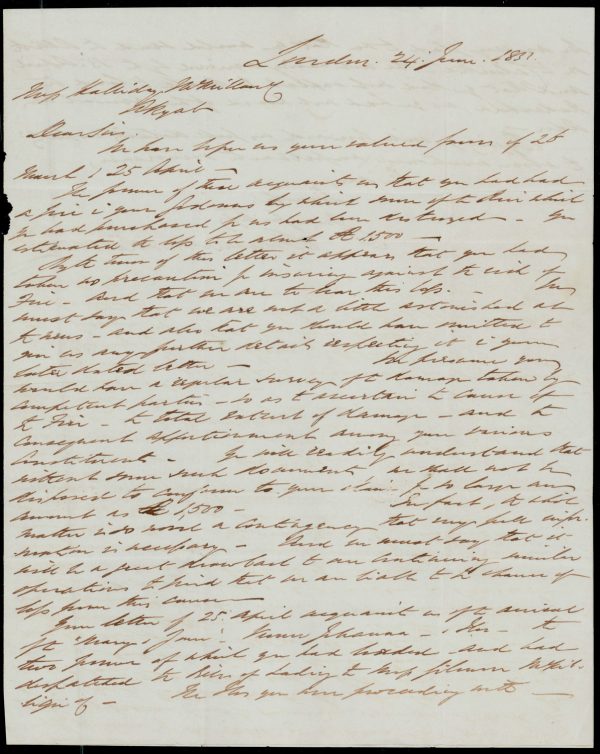 London. 24 June. 185
Mess Halliday
Akyab
Dear Sirs
We have before us your valued favors of 26
March & 25 April —
The former of these acquaints us that you had had
a fire in your Godowns by which some of the Rice which
you had purchased for us had been destroyed — You
estimated the loss to be about 1,500 —
By the tenor of this letter it appears that you had
taken no precaution for insuring against the risk of
Fire — and that we are to bear this loss. — We
must say that we are not a little astonished at
the news — and also that you should have omitted to
give us any further details respecting it in your
later dated letter — We presume you
would have a regular survey of the damage taken by
competent parties — so as to ascertain the cause of
the Fire — the total extent of damage — and the
consequent apportionment among your various
Constituents — You will readily understand that
without some such documents we shall not be
disposed to conform to your claim for so large an
amount as 1,500 — In fact, the whole
matter is so novel a contingency that very full infor-
mation is necessary — And we must say that it
will be a great drawback to our continuing similar
operations to find that we are liable to the chance of
loss from this cause
Your letter of 25 April acquaints us of the arrival
of the "Mary & Jane" Johanna — the
two former of which you had loaded and had
despatched the Bills of Lading to Mess
— We see you were proceeding with —